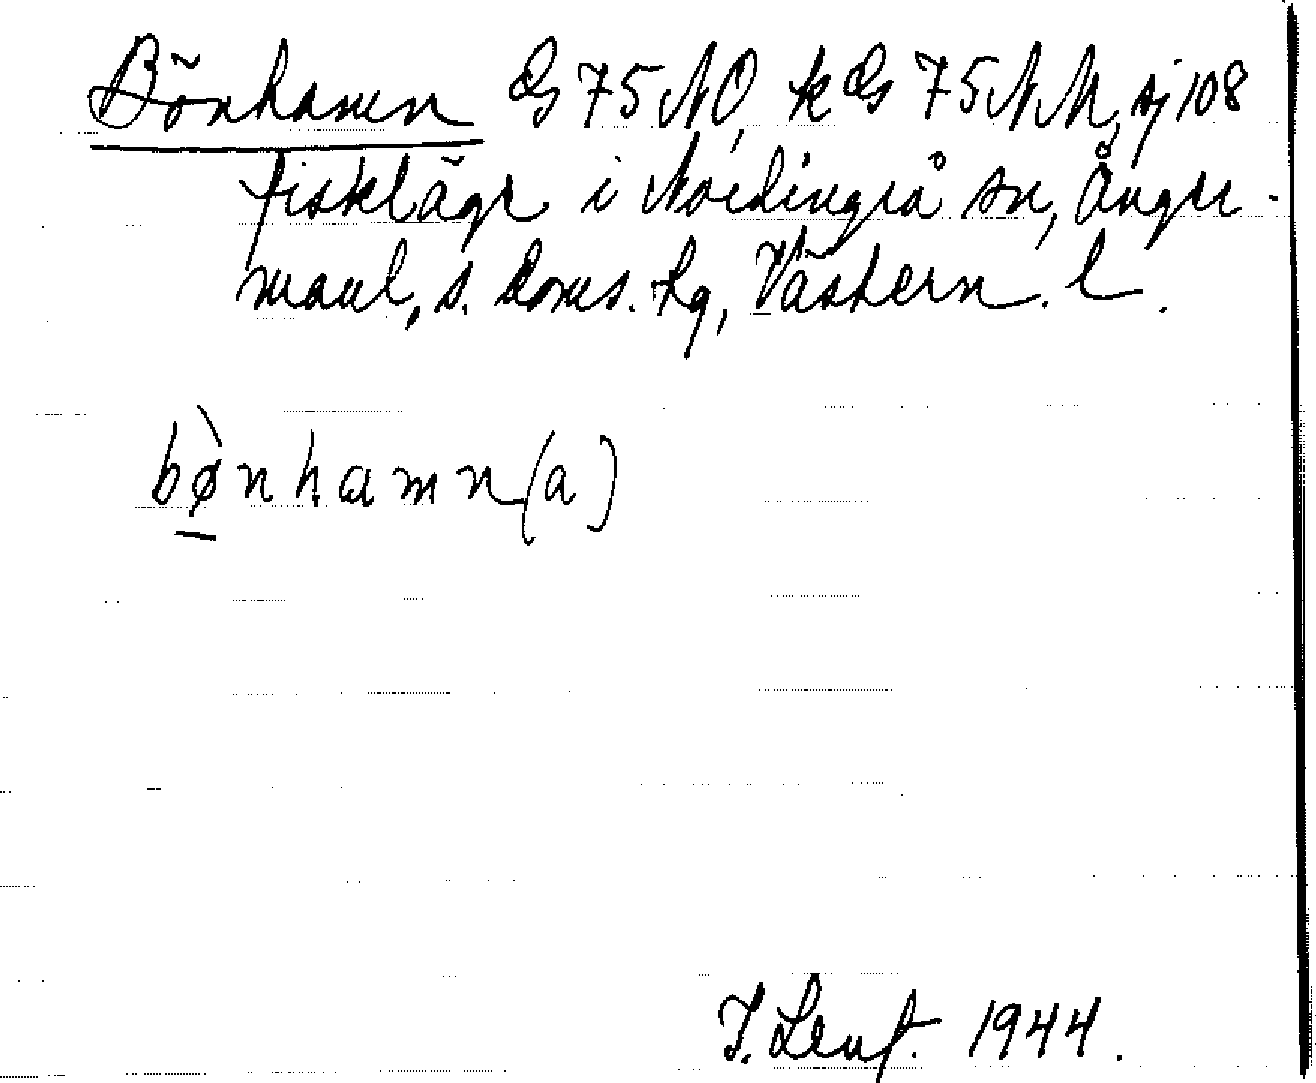 Bönhamn Gs 75 NO, k Gs 75 NM, sj 108
fiskläge i Nordingrå sn, Ånger-
manl, s. doms. hg, Västern. l.
bø̀nhamn(a)
I. Lenf. 1944.